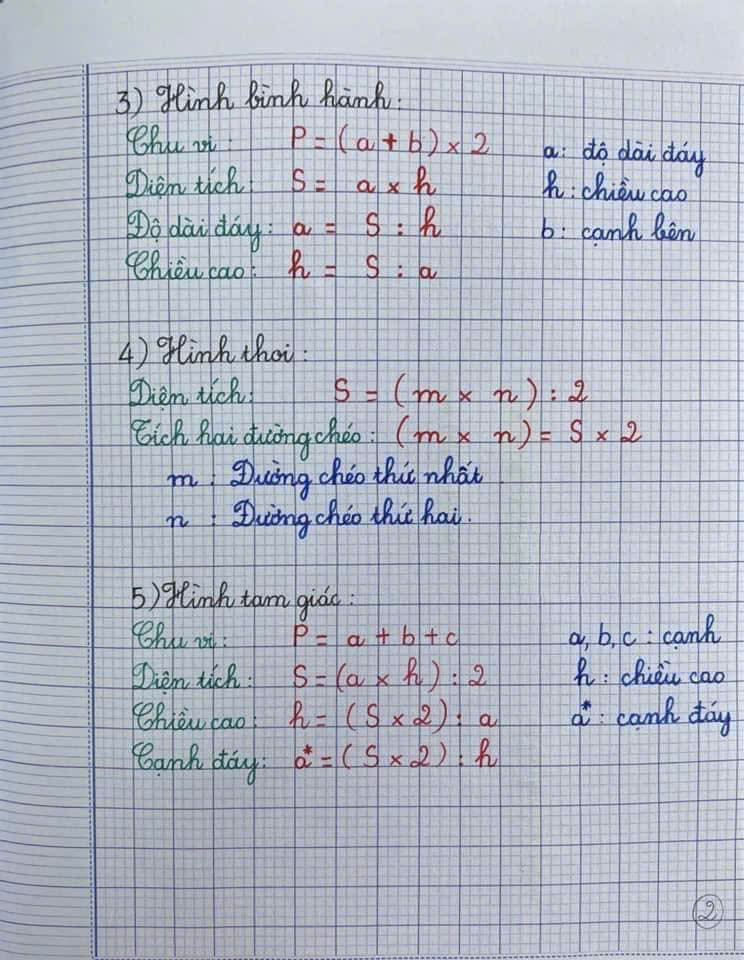 3) Hình bình hành:
Chu vi: P = (a + b) × 2
a: độ dài đáy
Diện tích: S = a × h
h: chiều cao
Độ dài đáy: a = S : h
b: cạnh bên
Chiều cao: h = S : a
4) Hình thoi:
Diện tích: S = (m × n) : 2
Tích hai đường chéo: (m × n) = S × 2
m : Đường chéo thứ nhất
n : Đường chéo thứ hai.
5) Hình tam giác:
Chu vi: P = a + b + c
a, b, c : cạnh
Diện tích: S = (a × h) : 2
h : chiều cao
Chiều cao: h = (S × 2) : a
a* : cạnh đáy
Cạnh đáy: a* = (S × 2) : h
2